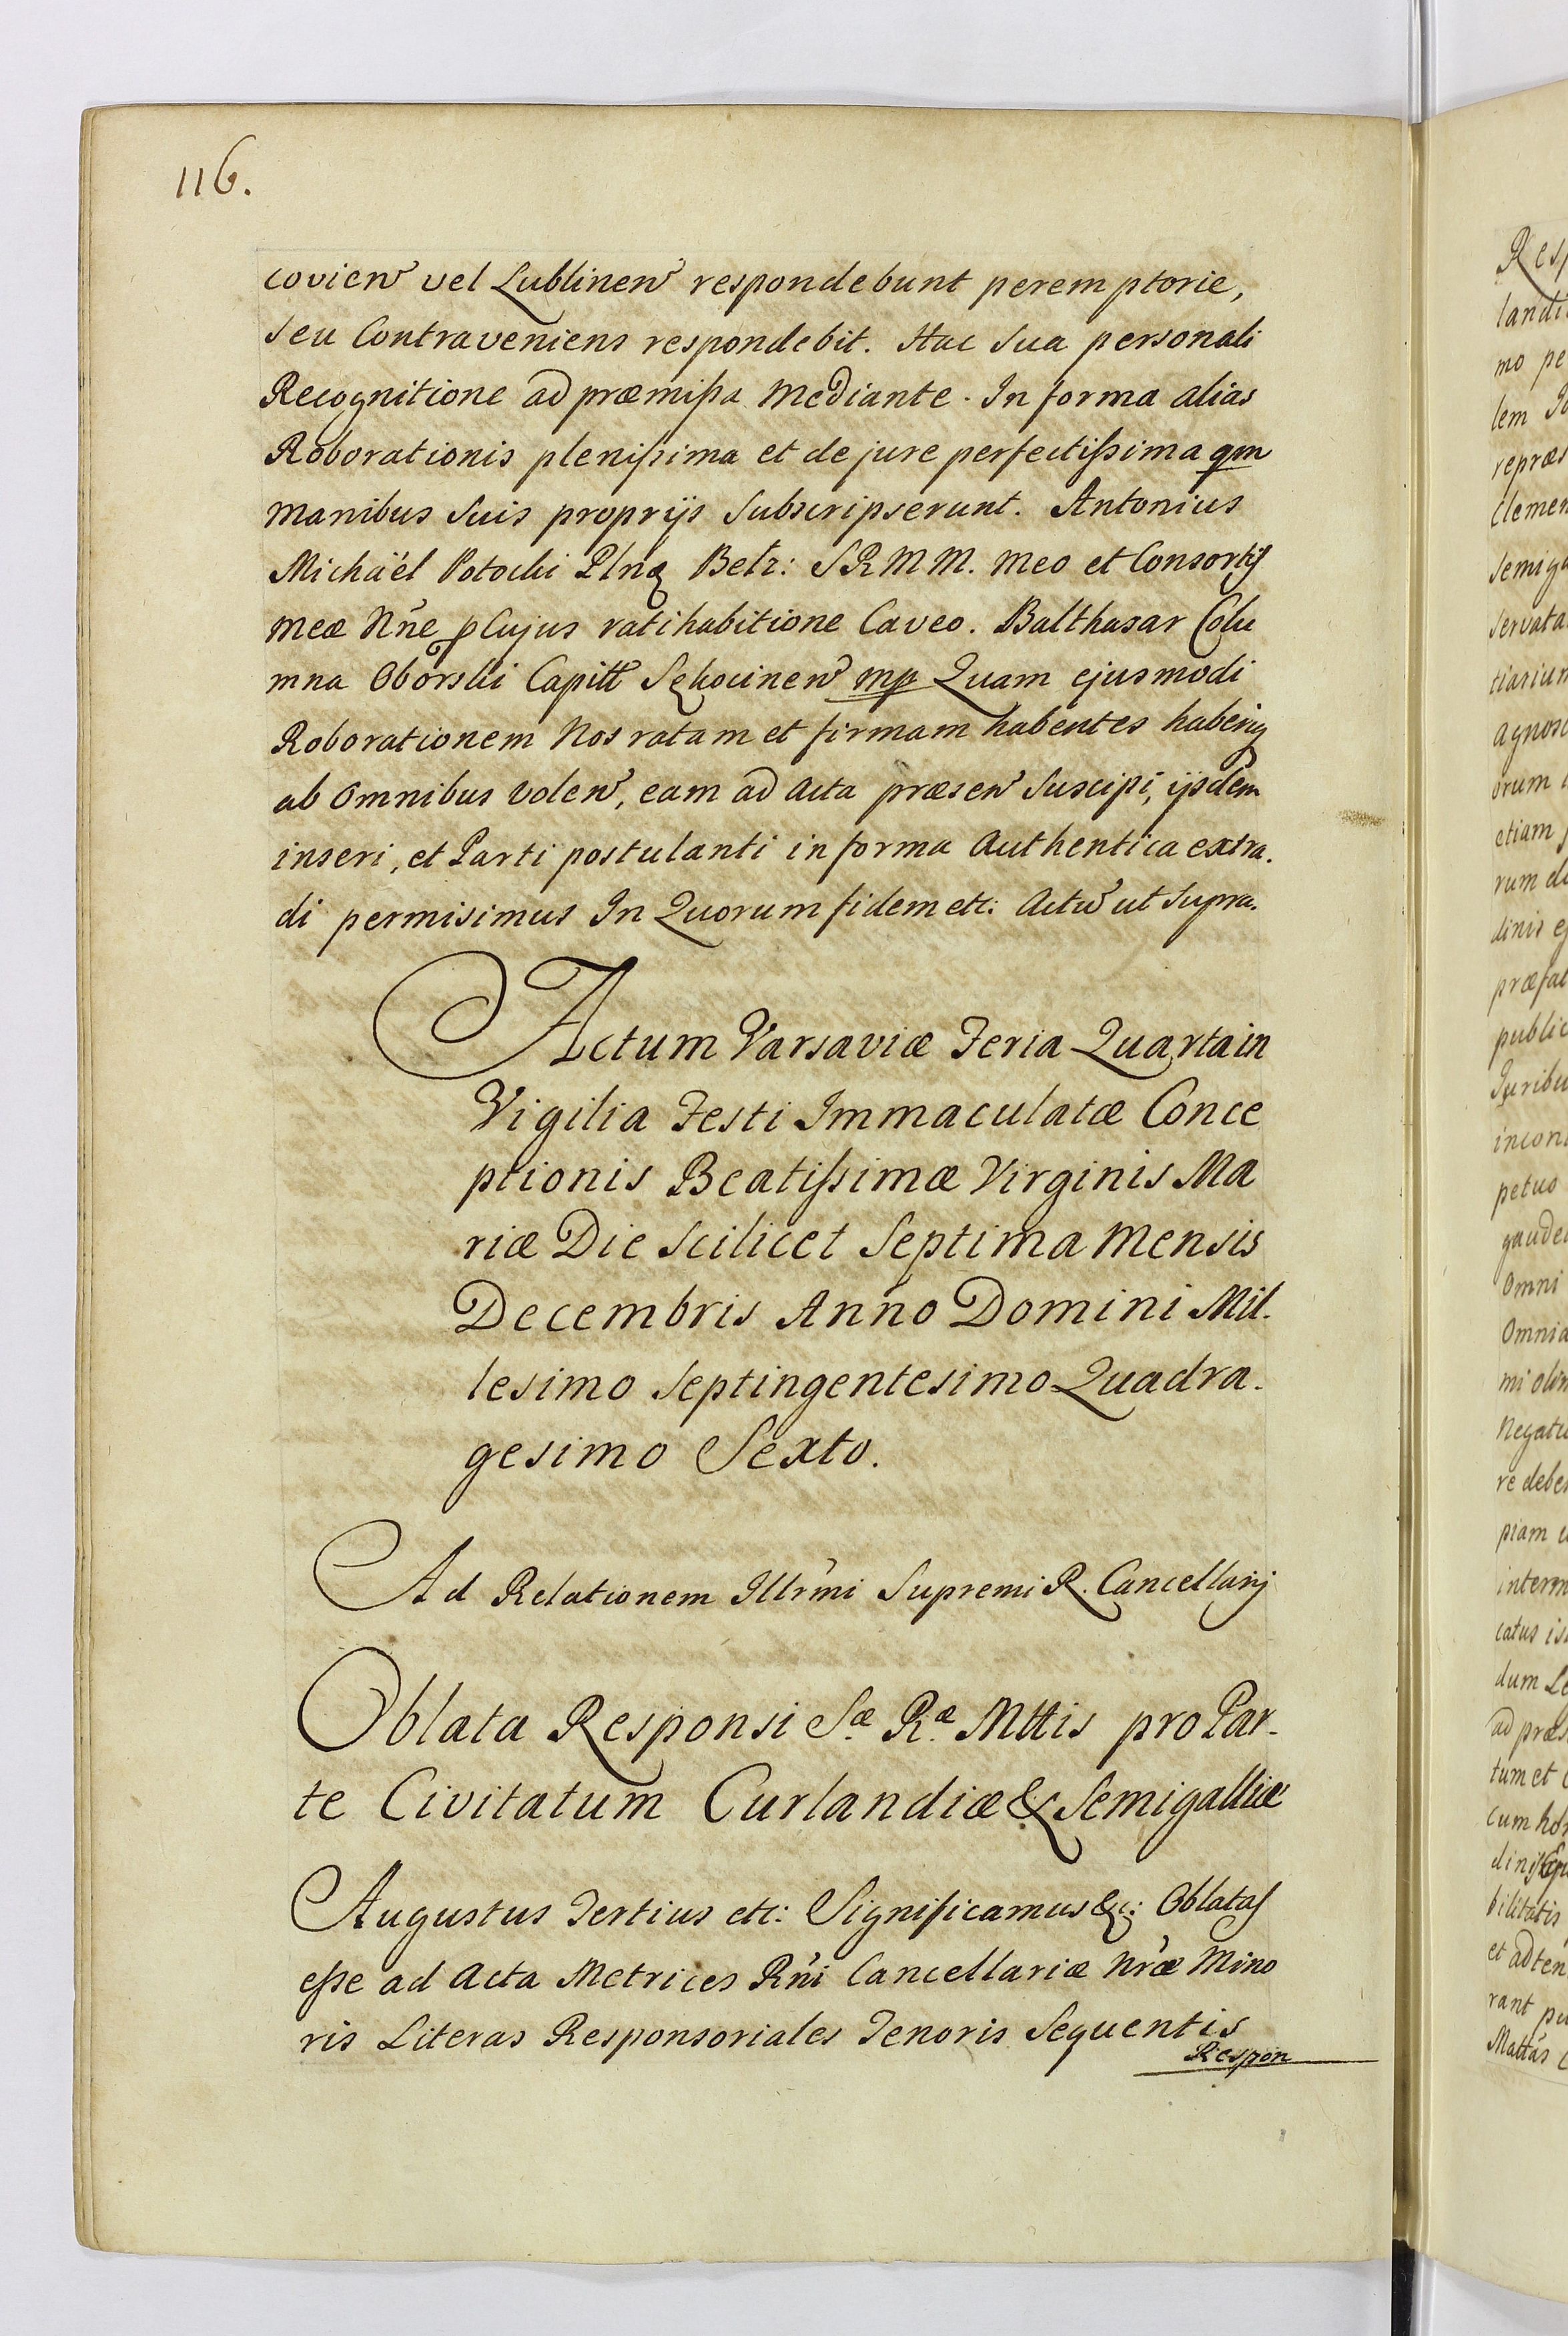 116.
covien vel Lublinen respondebunt peremptorie,
seu Contraveniens respondebit. Hac Sua personali
Recognitione ad præmißa Mediante. In forma alias
Roborationis plenißima et de jure perfectißima qm
manibus Suis proprijs Subscripserunt. Antonius
Michäel Potocki Plnq Betz: SRMM. meo et Consortis
meæ Nne plujus ratihabitione Caveo. Balthasar Colu
mna Oborski Capitt Sękocinen mp Quam ejusmodi
Roborationem Nos ratam et firmam habentes haberiq
ab Omnibus Volen, eam ad Acta præsen Suscipi, ijsdem
inseri, et Parti postulanti in forma Authentica extra.
di permisimus In Quorum fidem etc: Actu ut Supra.
Actum Varsaviæ Feria Quarta in
Vigilia Festi Immaculatæ Conce
ptionis Beatißimæ Virginis Ma
riæ Die Scilicet Septima Mensis
Decembris Anno Domini Mil.
lesimo Septingentesimo Quadra.
gesimo Sexto.
Ad Relationem Illrmi Supremi R. Cancellarij
Oblata Responsi Sæ Ræ Mttis pro Par-
te Civitatum Curlandiæ & Semigalliæ
Augustus Tertius etc: Significamus &c: Oblatas
eße ad Acta Metrices Rni Cancellariæ Nræ Mino
ris Literas Responsoriales Tenoris Sequentis
Respon